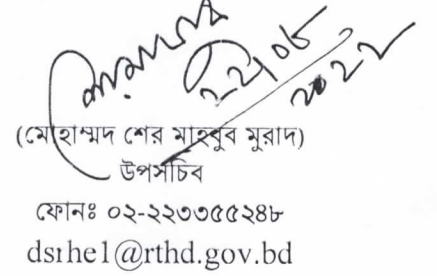 ২২/০৮
২০২২
(মোহাম্মদ শের মাহবুব মুরাদ)
উপসচিব
ফোনঃ ০২-২২৩৩৫৫২৪৮
dsrhe1@rthd.gov.bd